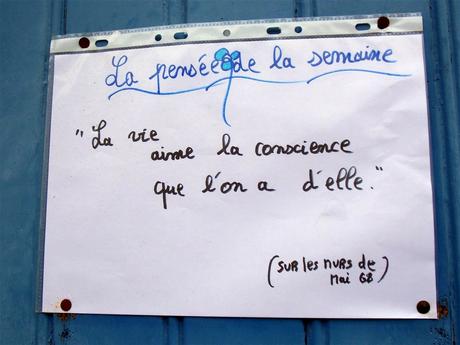 La pensée de la semaine
"La vie
aime la conscience
que l'on a d'elle."
(SUR les MURS de
Mai 68)